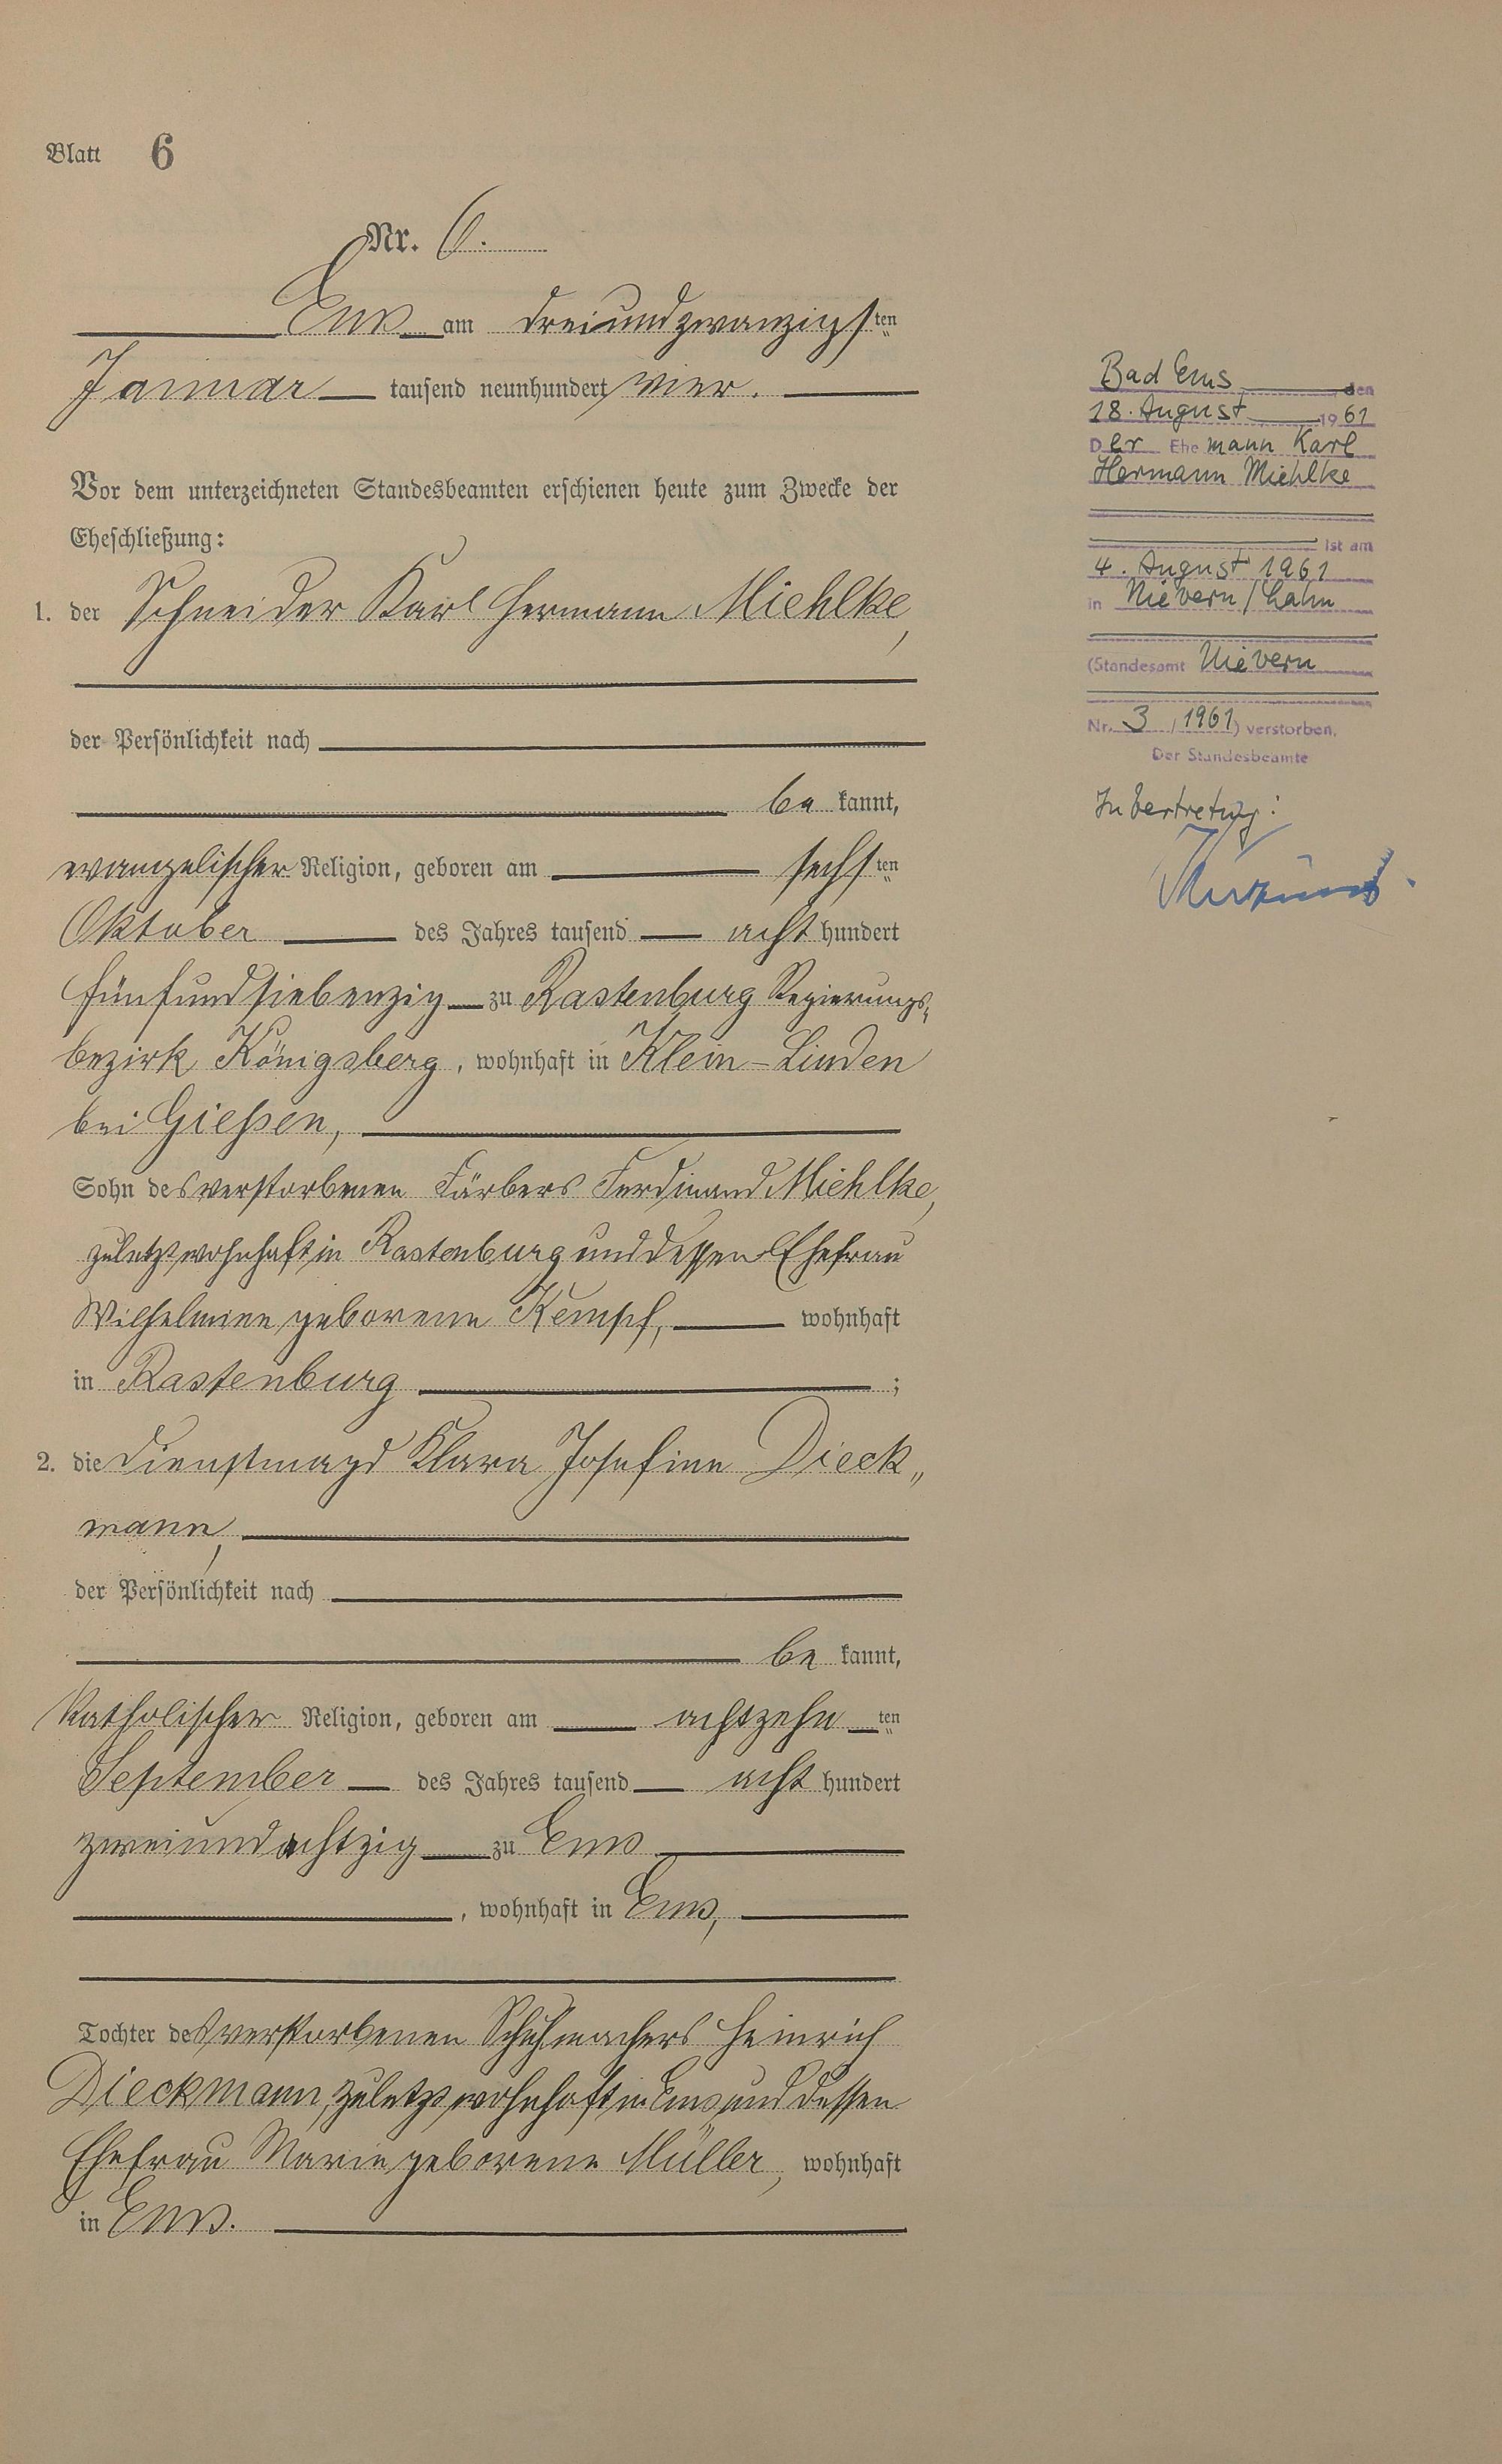 Blatt 6
Nr. 6.
Ems am dreiundzwanzigsten
Januar tausend neunhundert vier.
Vor dem unterzeichneten Standesbeamten erschienen heute zum Zwecke der
Eheschließung:
1. der Schneider Karl Hermann Miehlke,
der Persönlichkeit nach
be kannt,
evangelischer Religion, geboren am sechsten
Oktober des Jahres tausend acht hundert
fünfundsiebenzig zu Rastenburg Regierungs-
bezirk Königsberg, wohnhaft in Klein-Linden
bei Gießen,
Sohn des verstorbenen Färbers Ferdinand Miehlke,
zuletzt wohnhaft in Rastenburg und dessen Ehefrau
Wilhelmine geborene Kempf, wohnhaft
in Rastenburg ;
2. die Dienstmagd Klara Josefine Dieck„
mann,
der Persönlichkeit nach
be kannt,
katholischer Religion, geboren am achtzehnten
September des Jahres tausend acht hundert
zweiundachtzig zu Ems
, wohnhaft in Ems,
Tochter des verstorbenen Schuhmachers Heinrich
Dieckmann, zuletzt wohnhaft in Ems und dessen
Ehefrau Marie geborene Müller, wohnhaft
in Ems.
Bad Ems, den
18. August 1961
Der Ehemann Karl
Hermann Miehlke
ist am
4. August 1961
in Nievern/Lahn
(Standesamt Nievern
Nr. 3 / 1961) verstorben.
Der Standesbeamte
In Vertretung: